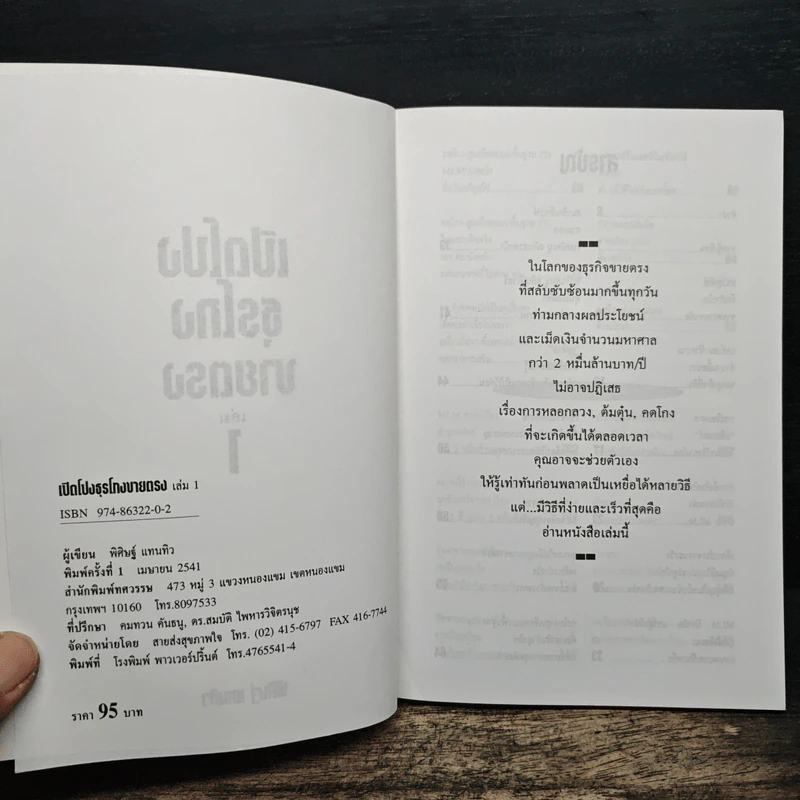 เปิดโปงธุรโกงขายตรง เล่ม 1
ISBN 974-86322-0-2
ผู้เขียน พิศิษฐ์ แทนทิว
พิมพ์ครั้งที่ 1 เมษายน 2541
สำนักพิมพ์ทศวรรษ 473 หมู่ 3 แขวงหนองแขม เขตหนองแขม
กรุงเทพฯ 10160 โทร.8097533
ที่ปรึกษา คมทวน คันธนู, ดร.สมบัติ ไพหารวิจิตรนุช
จัดจำหน่ายโดย สายส่งสุขภาพใจ โทร. (02) 415-6797 FAX 416-7744
พิมพ์ที่ โรงพิมพ์ พาวเวอร์ปริ้นต์ โทร.4765541-4
ราคา 95 บาท
ในโลกของธุรกิจขายตรง
ที่สลับซับซ้อนมากขึ้นทุกวัน
ท่ามกลางผลประโยชน์
และเม็ดเงินจำนวนมหาศาล
กว่า 2 หมื่นล้านบาท/ปี
ไม่อาจปฏิเสธ
เรื่องการหลอกลวง, ต้มตุ๋น, คดโกง
ที่จะเกิดขึ้นได้ตลอดเวลา
คุณอาจจะช่วยตัวเอง
ให้รู้เท่าทันก่อนพลาดเป็นเหยื่อได้หลายวิธี
แต่...มีวิธีที่ง่ายและเร็วที่สุดคือ
อ่านหนังสือเล่มนี้